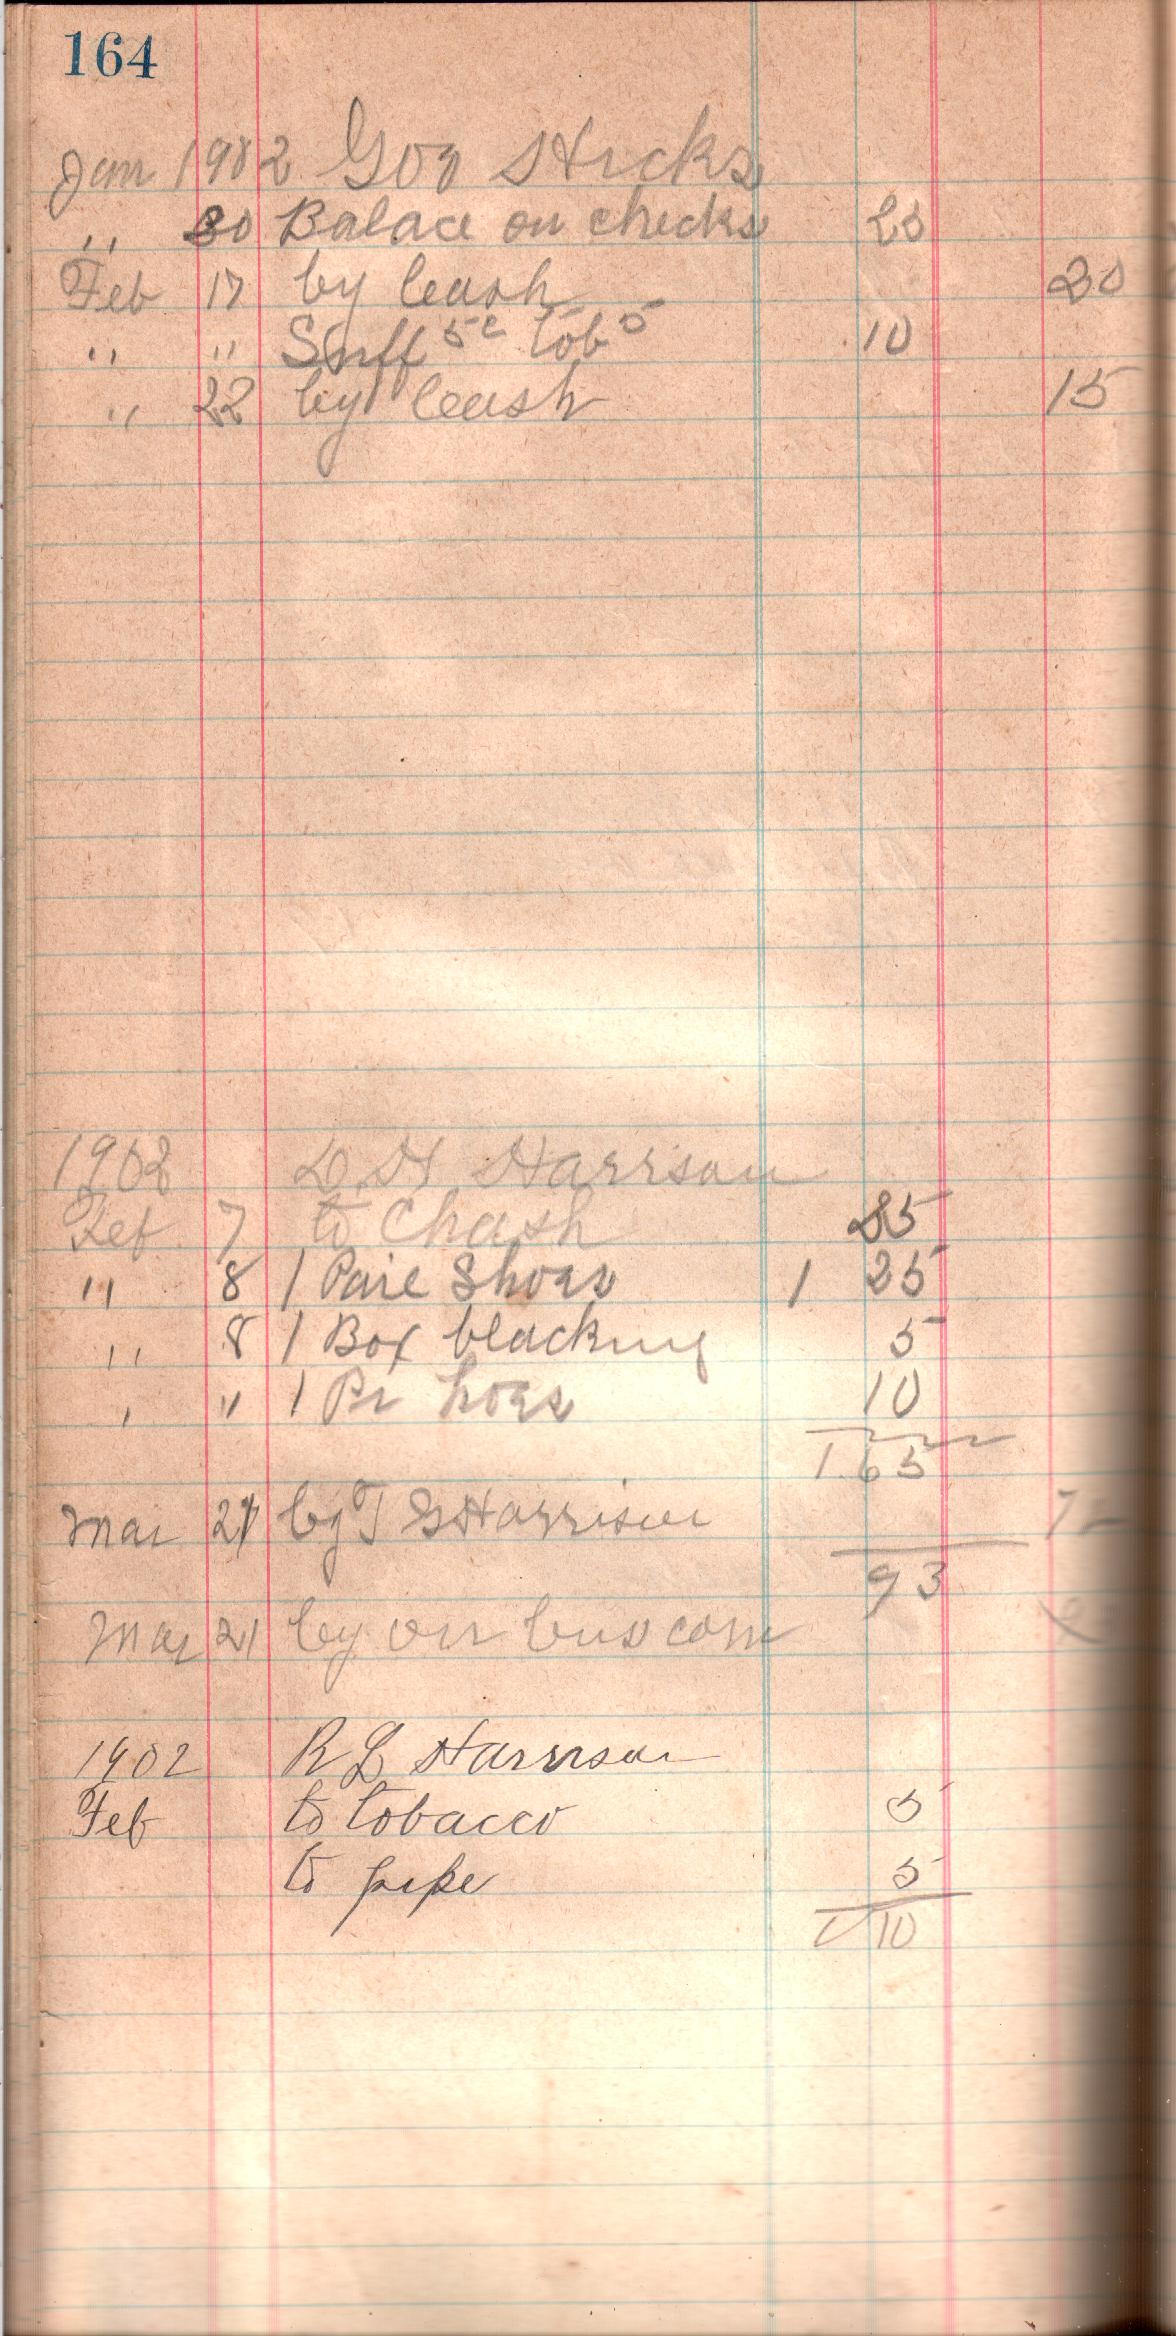 164
Jan 1902 Goy Hicks
" 30 Balace on checks 20
Feb 17 by Cash 20
" " Snff 5c Tob 5 10
" 22 by Cash 15
1902 D H Harrson
Feb 7 to Chash 25
" 8 1 Paie Shoes 1 25
" 8 1 Box blacking 5
" " 1 Pr hoes 10
1.65
Mar 21 by T G Harrison 72
93
Mar 21 by
1902 R L Harrison
Feb to tobacco 5
to pipe 5
10